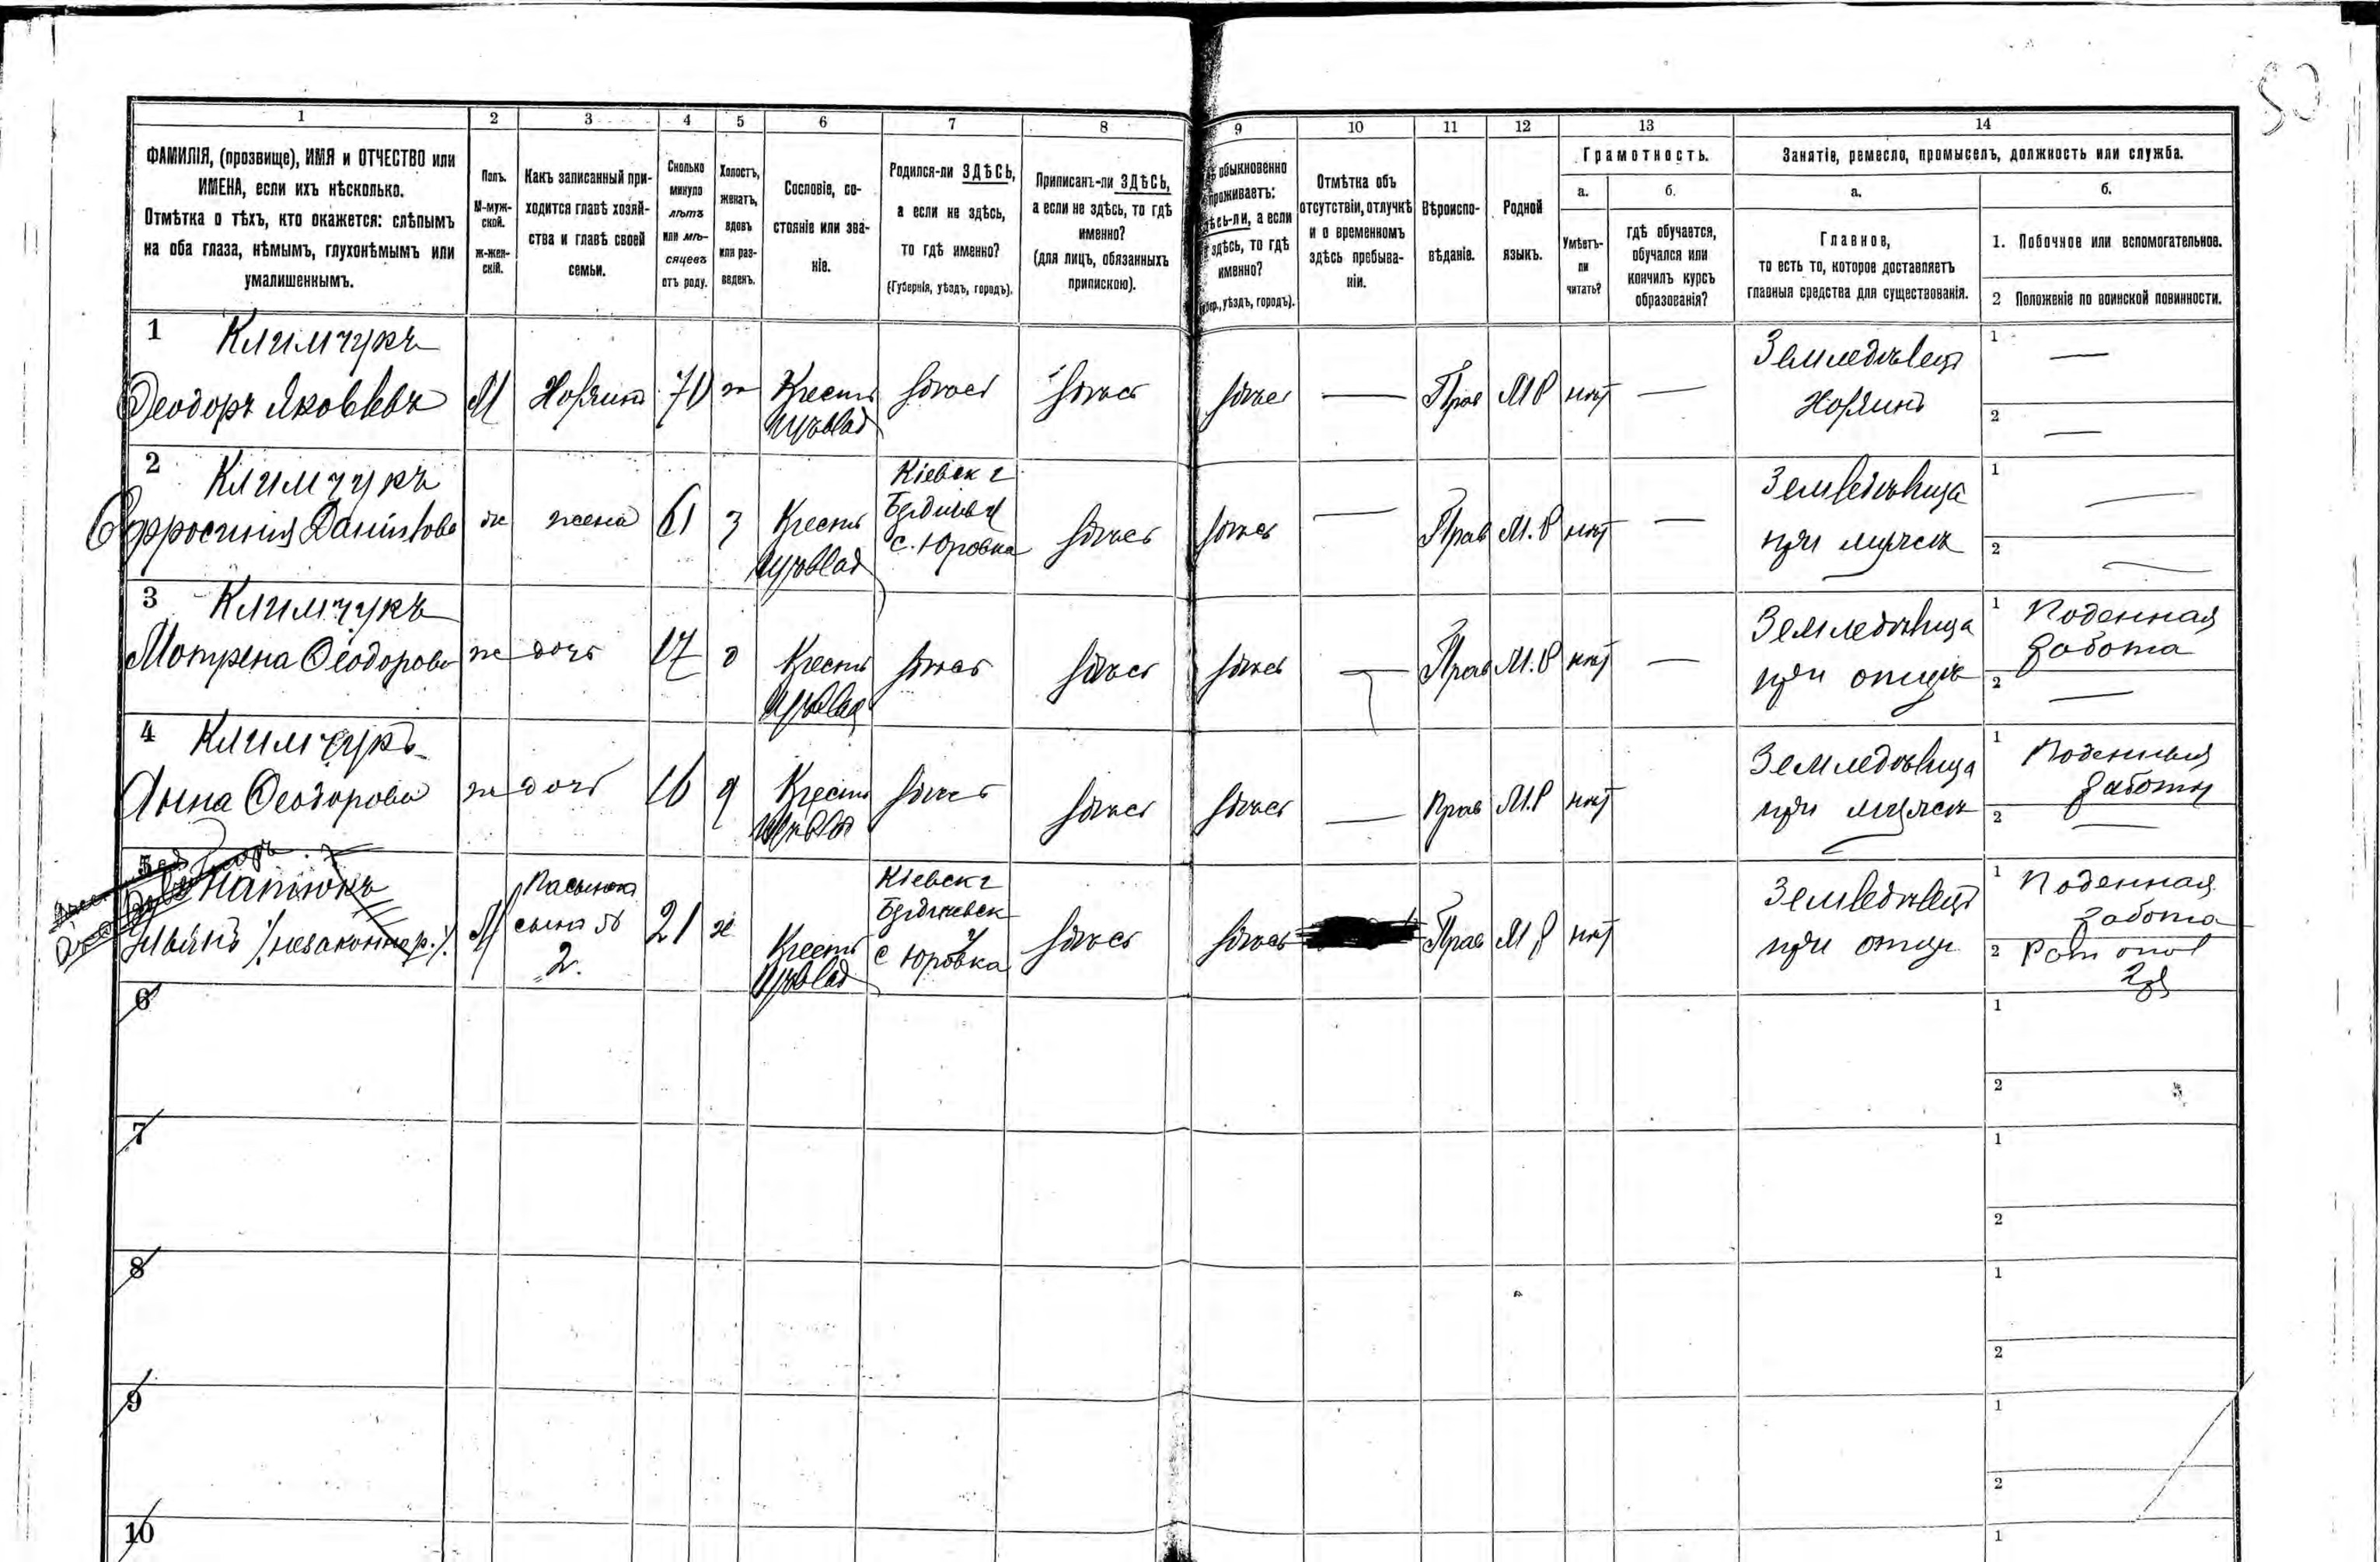 50
1 2 3 4 5 6 7 8 9 10 11 12 13 14
ФАМИЛІЯ, (прозвище), ИМЯ и ОТЧЕСТВО или
ИМЕНА, если ихъ нѣсколько.
Отмѣтка о тѣхъ, кто окажется: слѣпымъ
на оба глаза, нѣмымъ, глухонѣмымъ или
умалишеннымъ.
Полъ.
М-муж-
ской.
ж-жен-
скій.
Какъ записанный при-
ходится главѣ хозяй-
ства и главѣ своей
семьи.
Сколько
минуло
лѣтъ
или мѣ-
сяцевъ
отъ роду.
Холостъ,
женатъ,
вдовъ
или раз-
веденъ.
Сословіе, со-
стояніе или зва-
ніе.
Родился-ли ЗДѢСЬ,
а если не здѣсь,
то гдѣ именно?
(Губернія, уѣздъ, городъ).
Приписанъ-ли ЗДѢСЬ,
а если не здѣсь, то гдѣ
именно?
(для лицъ, обязанныхъ
припискою).
обыкновенно
проживаетъ:
здѣсь-ли, а если
здѣсь, то гдѣ
именно?
уѣздъ, городъ).
Отмѣтка объ
отсутствіи, отлучкѣ
и о временномъ
здѣсь пребыва-
ніи.
Вѣроиспо-
вѣданіе.
Родной
языкъ.
Грамотность.
а.
Умѣетъ-
ли
читать?
б.
гдѣ обучается,
обучался или
кончилъ курсъ
образованія?
Занятіе, ремесло, промыселъ, должность или служба.
а.
Главное,
то есть то, которое доставляетъ
главныя средства для существованія.
б.
1. Побочное или вспомогательное.
2 Положеніе по воинской повинности.
1 Климчукъ
Ѳеодоръ Яковлевъ
М Хозяинъ 70 ж Крестъ
здѣсь здѣсь здѣсь — Прав МР нѣтъ —
Земледѣлецъ
Хозяинъ
1 —
2 —
2 Климчукъ
Ефросинія Данилова
ж жена 61 з Крестъ
Кіевск г
Бердичев у
с. Юровка
здѣсь здѣсь — Прав М.Р нѣтъ —
Земледѣлица
при мужѣ
1 —
2 —
3 Климчукъ
Мотрена Ѳеодорова
ж дочь 17 д Крестъ
здѣсь здѣсь здѣсь — Прав М.Р нѣтъ —
Земледѣлица
при отцѣ
1 Поденная
работа
2 —
4 Климчукъ
Анна Ѳеодорова
ж дочь 16 д Крестъ
здѣсь здѣсь здѣсь — Прав М.Р нѣтъ
Земледѣлица
при
1 Поденныя
работы
2 —
5
Иванъ
М
2.
21 Крестъ
Кіевск г
Бердичевск
у
с Юровка
здѣсь здѣсь Прав М Р нѣтъ
Земледѣлецъ
при отцѣ
1 Поденная
работа
2 Рат опол
2
6
1
2
7
1
2
8
1
2
9
1
2
10
1